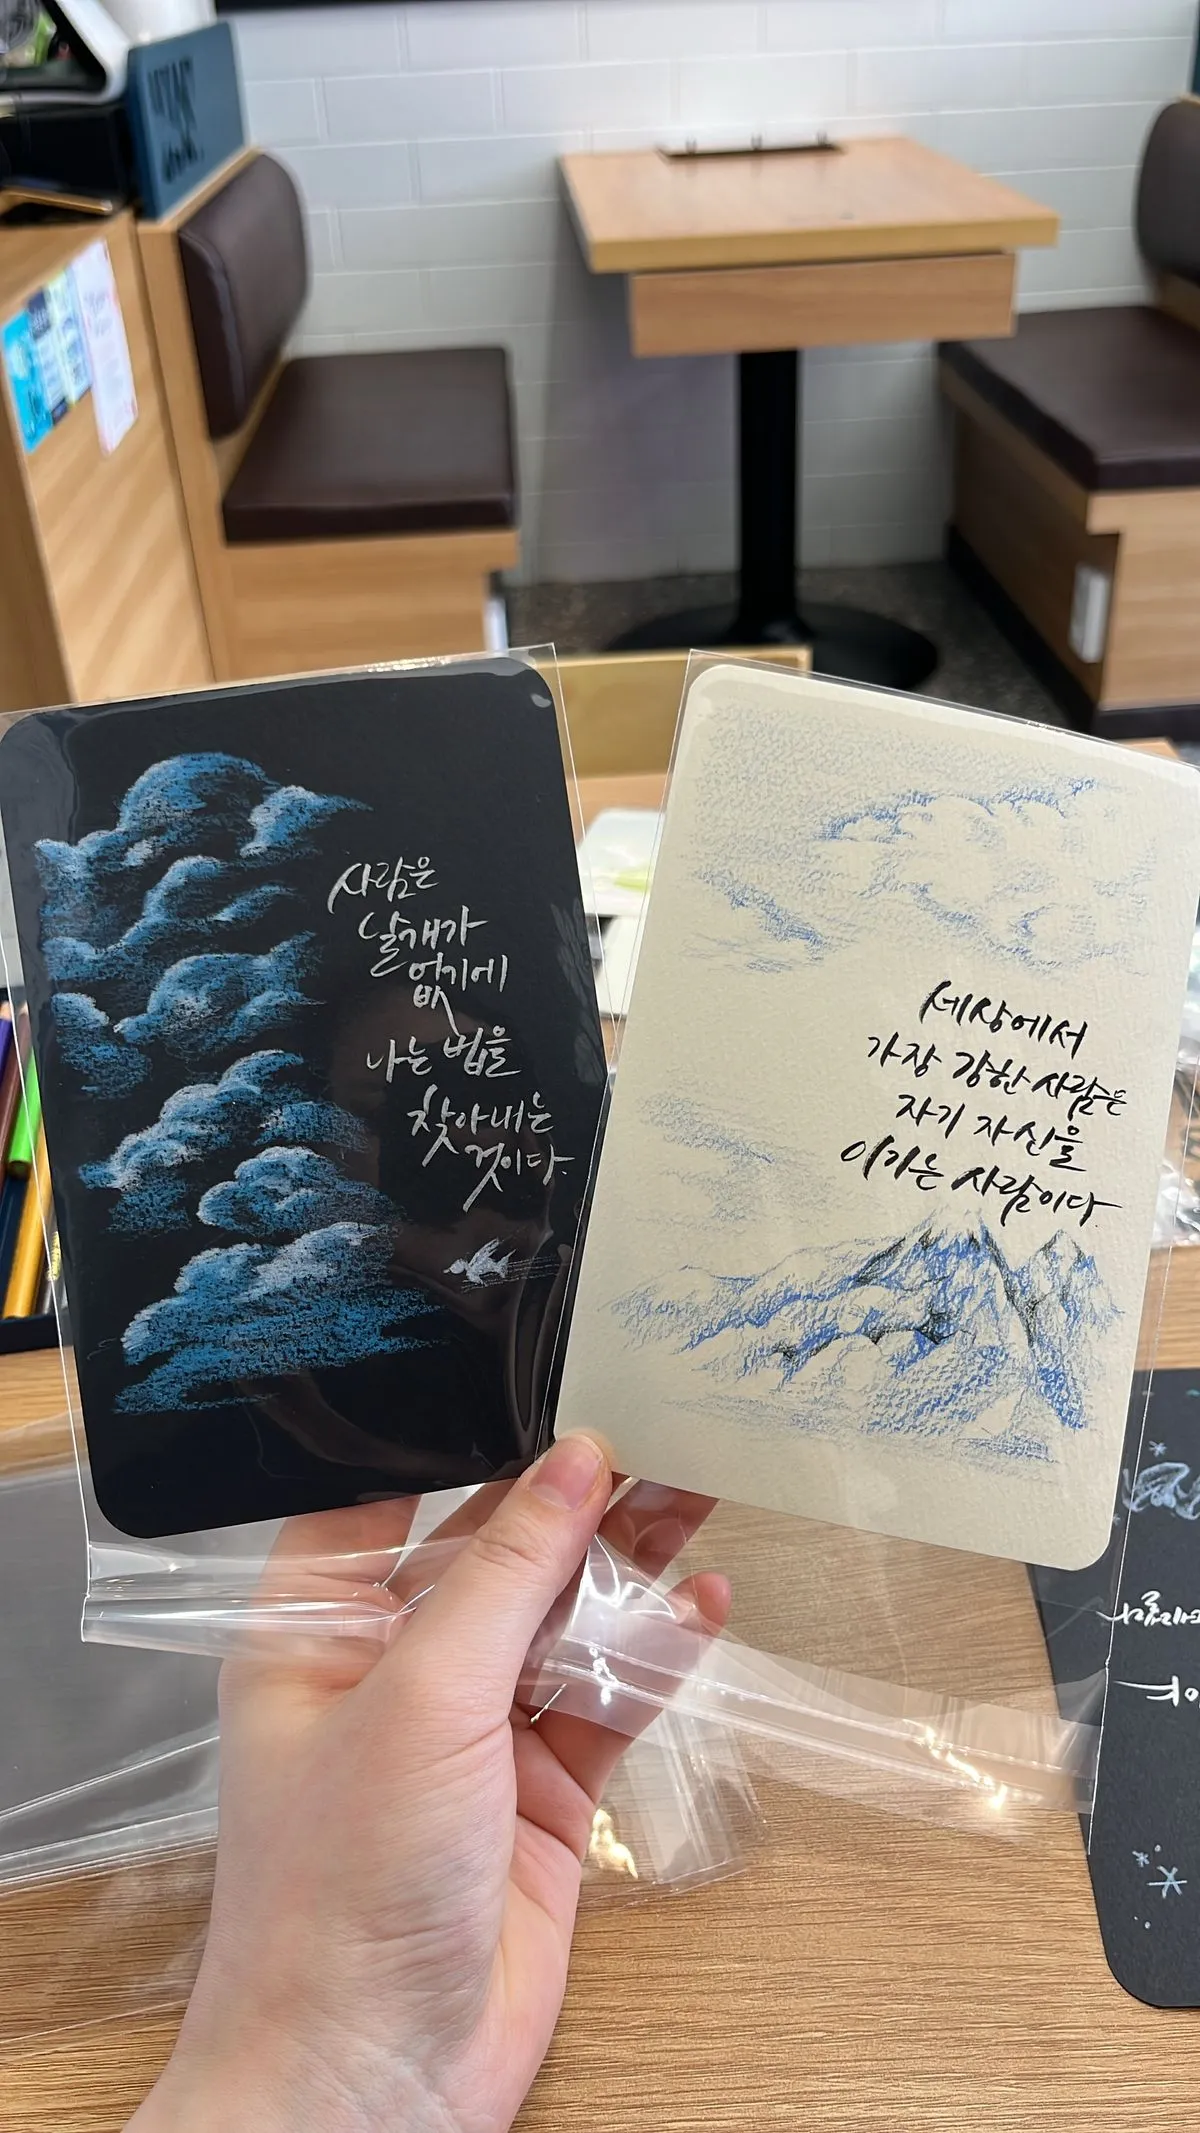 사람은
날개가
없기에
나는 법을
찾아내는
것이다.
세상에서
가장 강한 사람은
자기 자신을
이기는 사람이다.